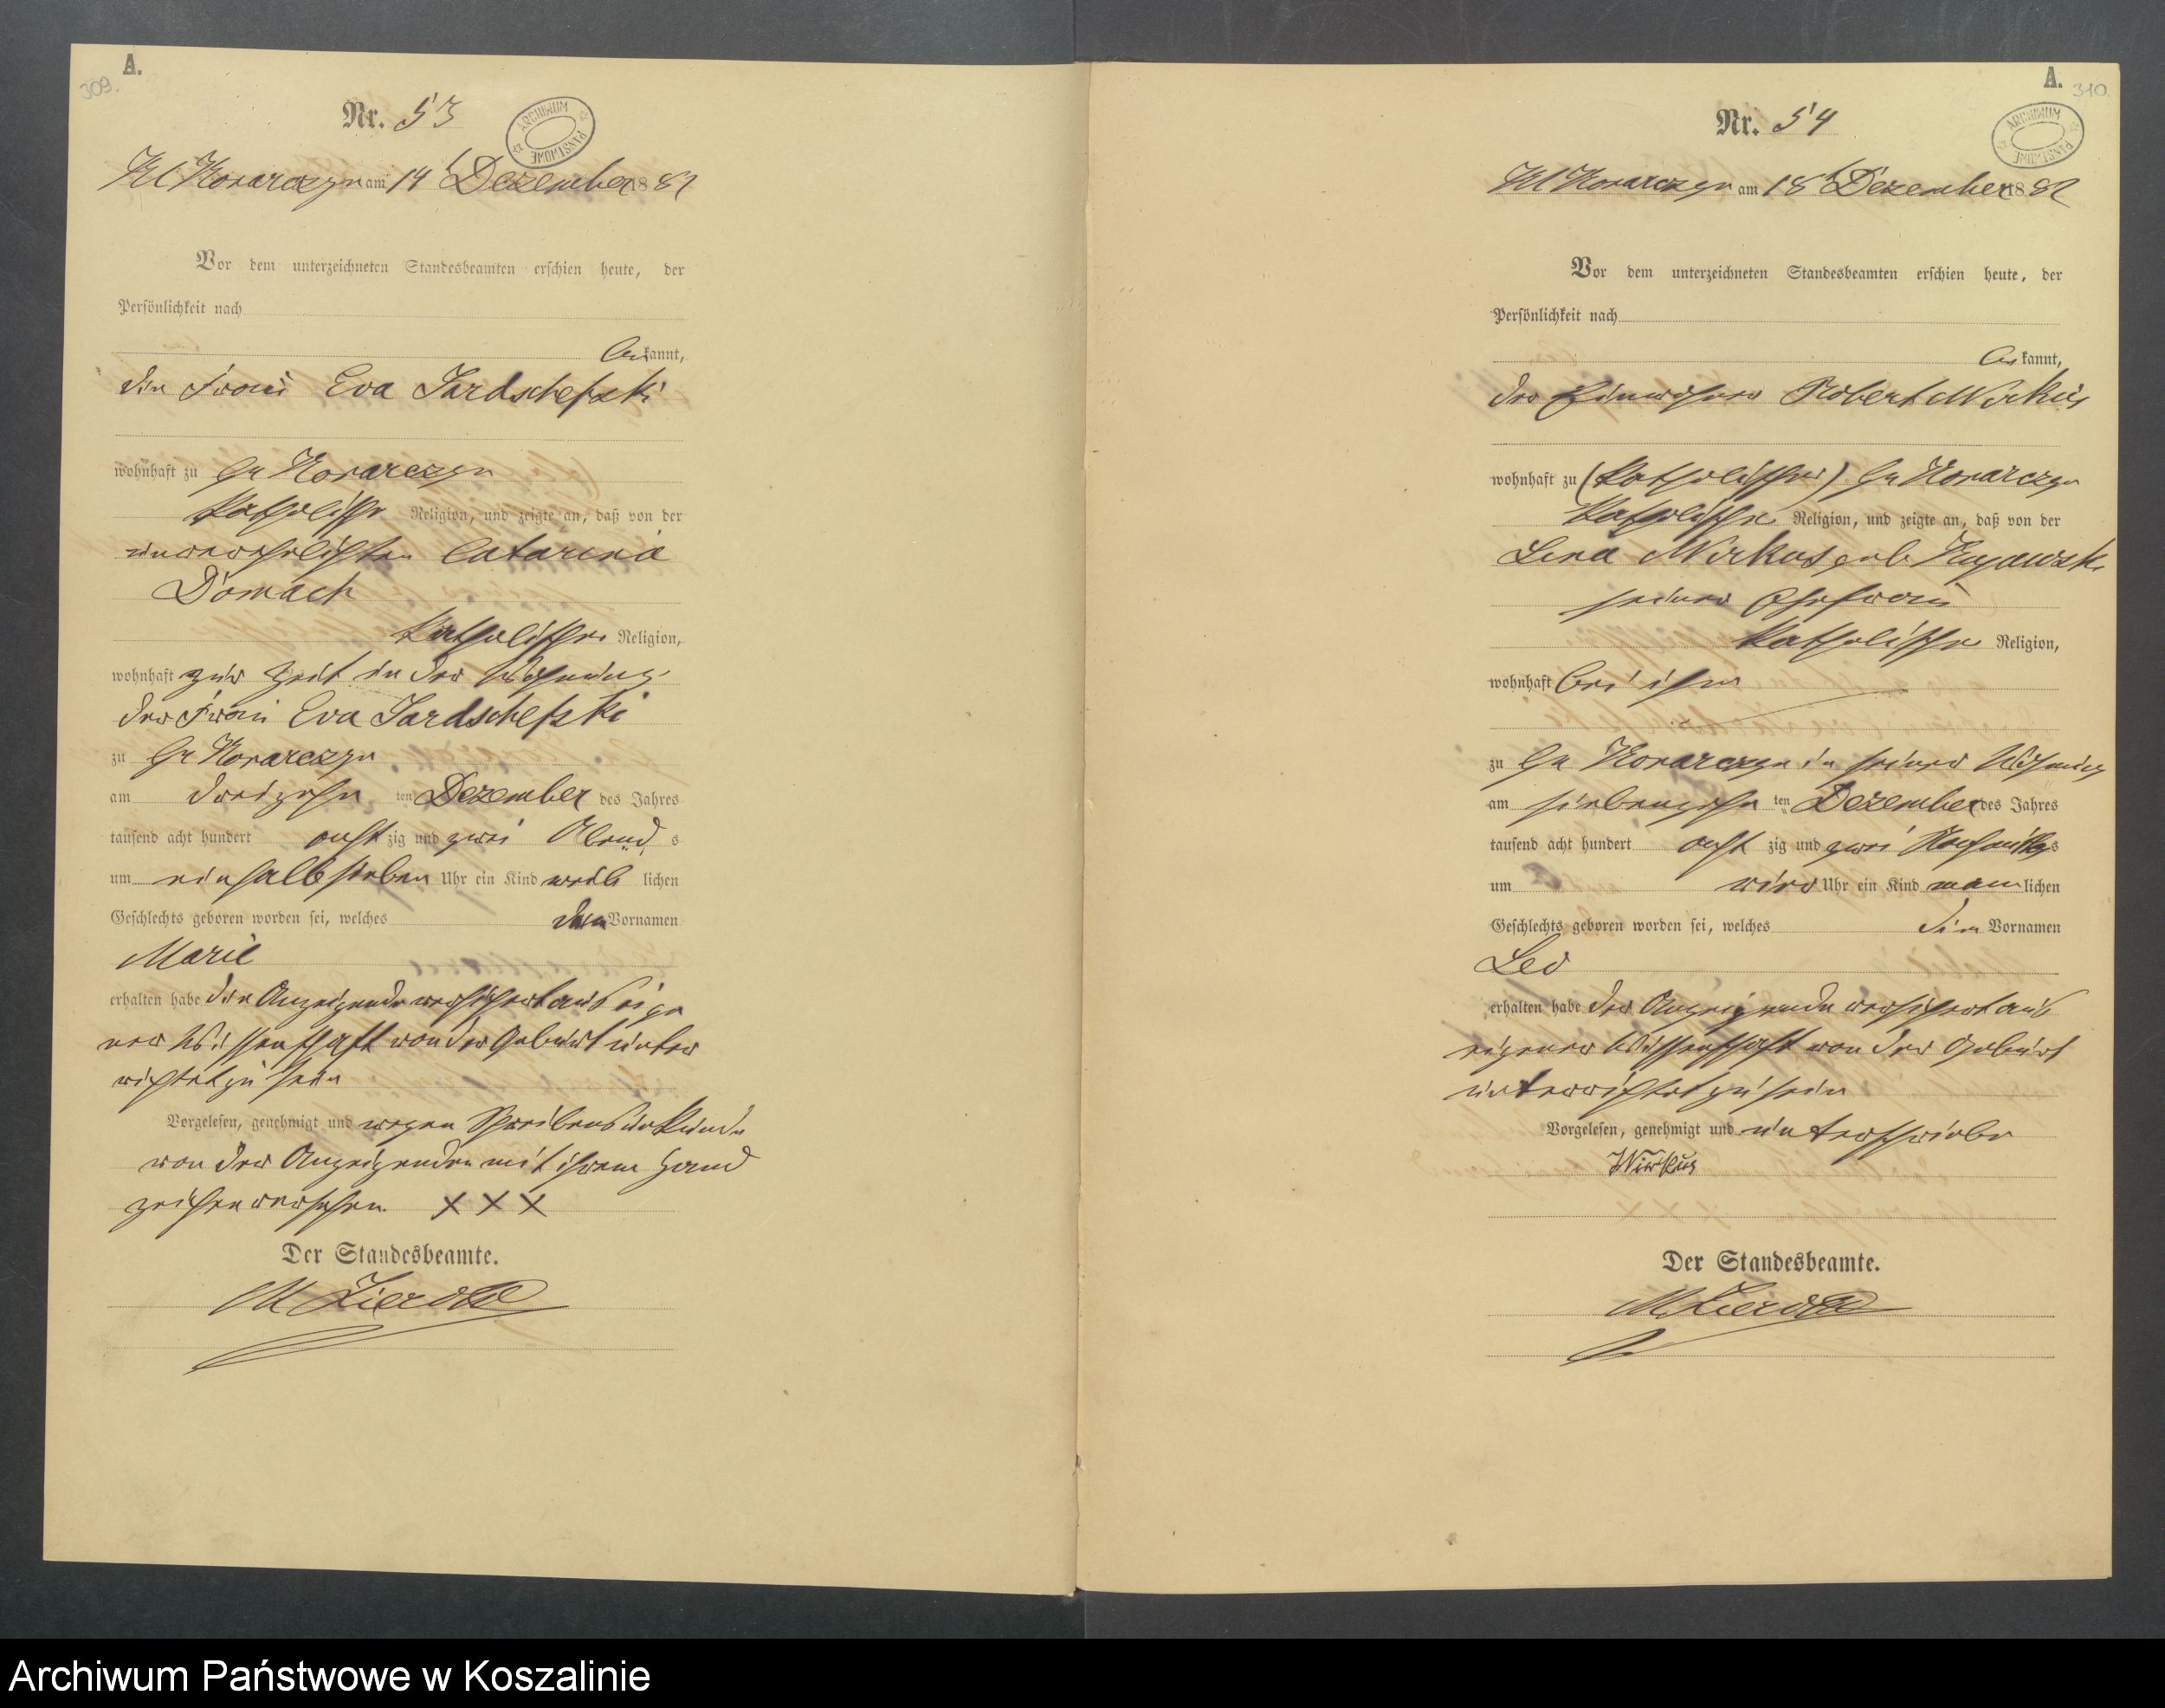 A.
309.
Nr. 53
ARCHIWUM PAŃSTWOWE
Kl Konarczyn am 14t Dezember 1882
Vor dem unterzeichneten Standesbeamten erschien heute, der
Persönlichkeit nach
bekannt,
die Frau Eva Jardschefzki
wohnhaft zu Gr Konarczyn
katholische Religion, und zeigte an, daß von der
unverehelichten Catarina
Domach
katholische Religion,
wohnhaft zur Zeit in der Wohnung
der Frau Eva Jardschefzki
zu Gr Konarczyn
am dreizehn ten Dezember des Jahres
tausend acht hundert acht zig und zwei Abend s
um einhalb sieben Uhr ein Kind weib lichen
Geschlechts geboren worden sei, welches den Vornamen
Marie
erhalten habe die Anzeigende versichert aus eige
ner Wissenschaft von der Geburt unter
richtet zu sein
Vorgelesen, genehmigt und wegen Schreibensunkunde
von der Anzeigenden mit ihrem Hand
zeichen versehen. X X X
Der Standesbeamte.
A.
310.
Nr. 54
ARCHIWUM PAŃSTWOWE
Kl Konarczyn am 18t Dezember 1882
Vor dem unterzeichneten Standesbeamten erschien heute, der
Persönlichkeit nach
bekannt,
der Einwohner Robert Wirkus
wohnhaft zu (katholischer) Gr Konarczyn
katholische Religion, und zeigte an, daß von der
Lena Wirkus geb
seiner Ehefrau
katholische Religion,
wohnhaft bei ihm
zu Gr Konarczyn in seiner Wohnung
am siebenzehn ten Dezember des Jahres
tausend acht hundert acht zig und zwei Nachmittags
um vier Uhr ein Kind männ lichen
Geschlechts geboren worden sei, welches den Vornamen
Leo
erhalten habe der Anzeigende versichert aus
eigener Wissenschaft von der Geburt
unterrichtet zu sein
Vorgelesen, genehmigt und unterschrieben
Wirkus
Der Standesbeamte.
Archiwum Państwowe w Koszalinie